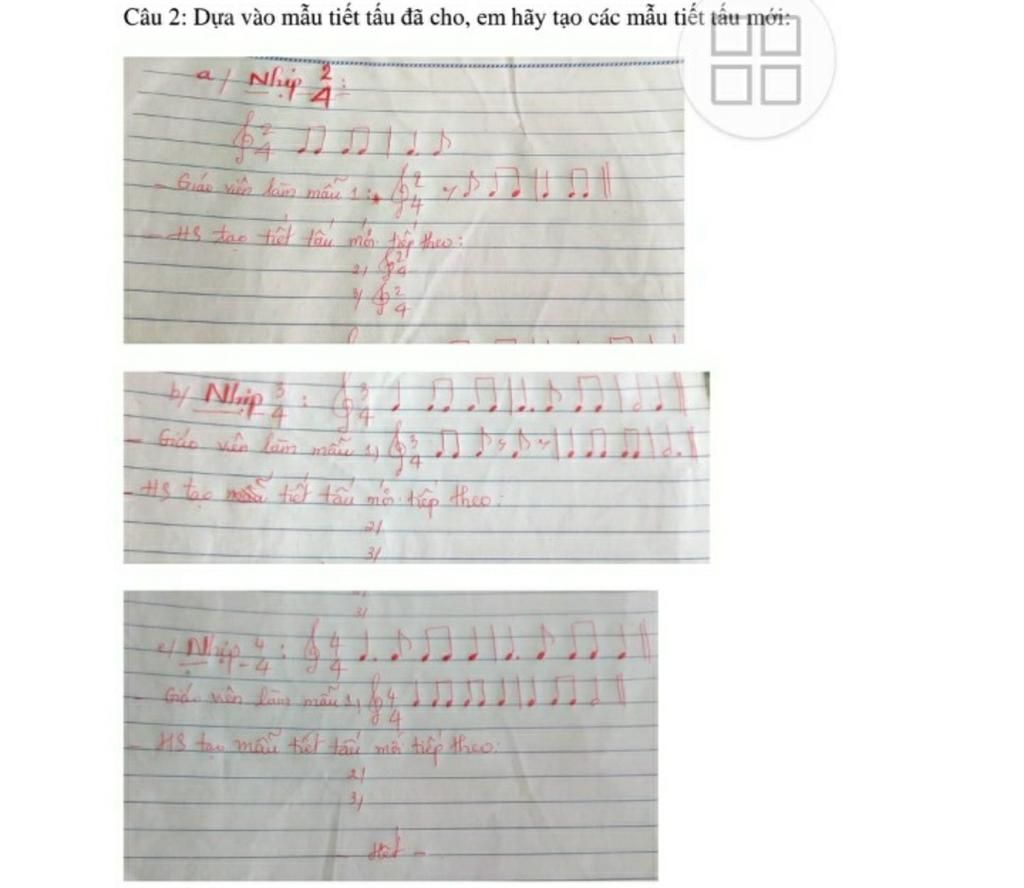 Câu 2: Dựa vào mẫu tiết tấu đã cho, em hãy tạo các mẫu tiết tấu mới:
a/ Nhịp 2/4:
2/4
- Giáo viên làm mẫu 1: 2/4
- HS tạo tiết tấu mới tiếp theo:
2/ 2/4
3/ 2/4
b/ Nhịp 3/4: 3/4
- Giáo viên làm mẫu 1) 3/4
- HS tạo tiết tấu mới tiếp theo:
2/
3/
3/
c/ Nhịp 4/4: 4/4
- Giáo viên làm mẫu 1) 4/4
- HS tạo mẫu tiết tấu mới tiếp theo:
2/
3/
- Hết -